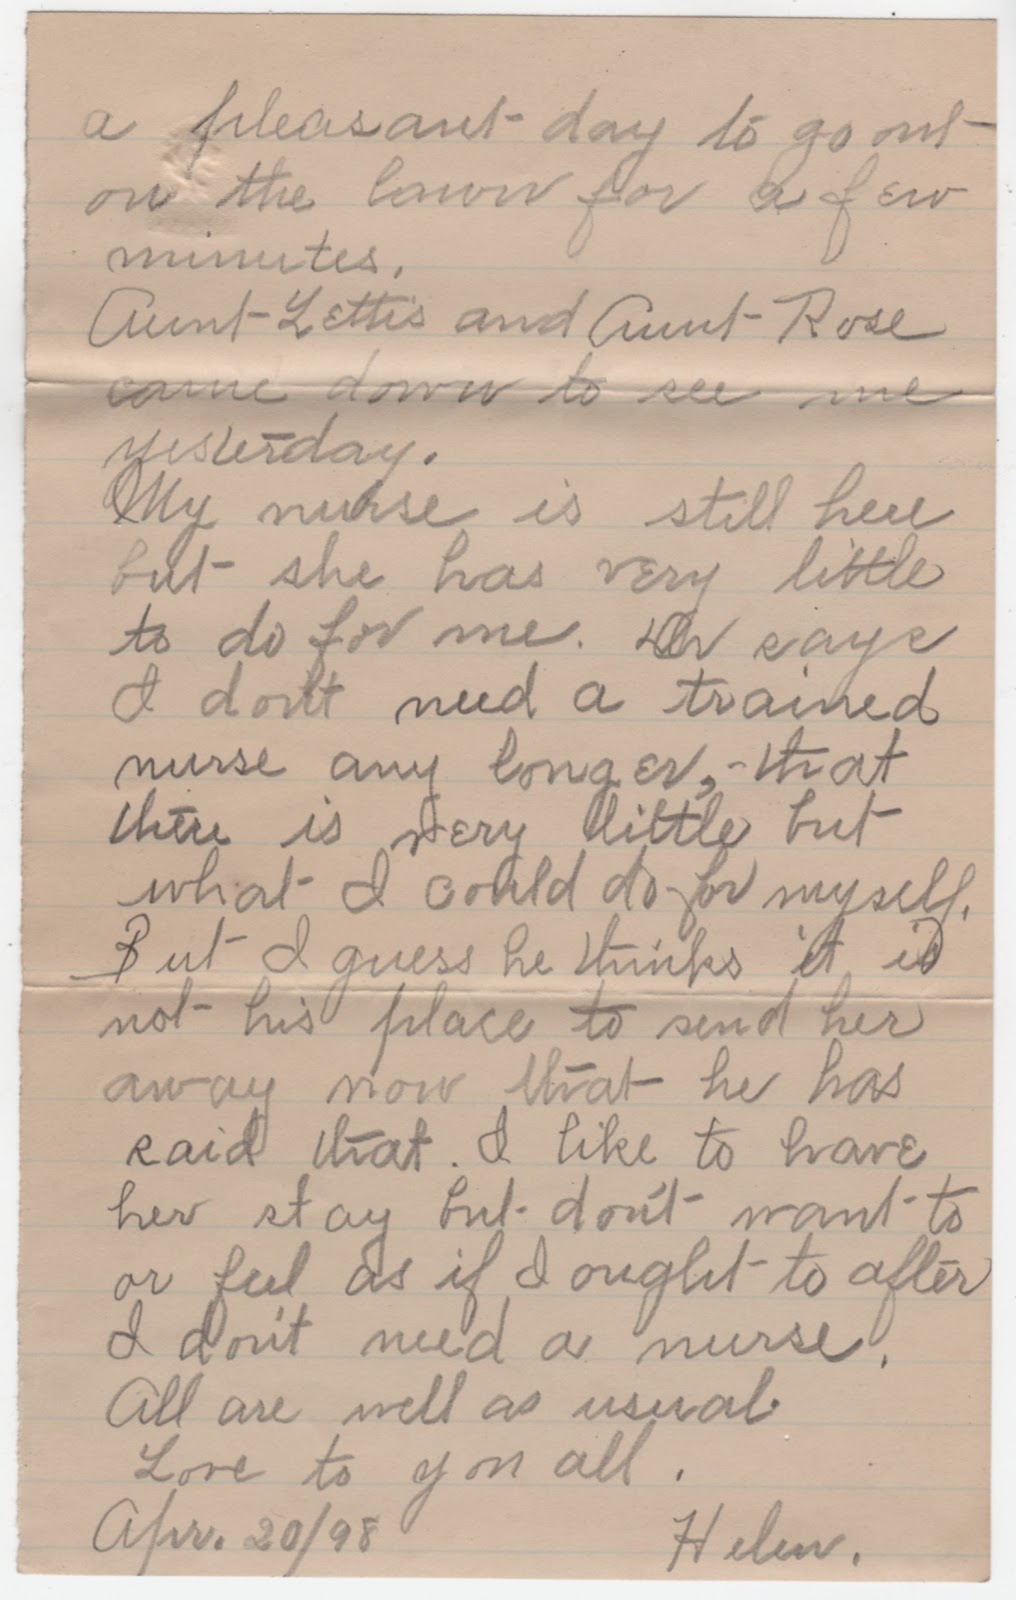 a pleasant day to go out
on the lawn for a few
minutes.
Aunt Lettis and Aunt Rose
came down to see me
yesterday.
My nurse is still here
but she has very little
to do for me. Dr says
I don't need a trained
nurse any longer, - that
there is very little but
what I could do for myself.
But I guess he thinks it is
not his place to send her
away now that he has
said that. I like to have
her stay but don't want to
or feel as if I ought to after
I don't need a nurse.
All are well as usual.
Love to you all.
Apr. 20/98 Helen.